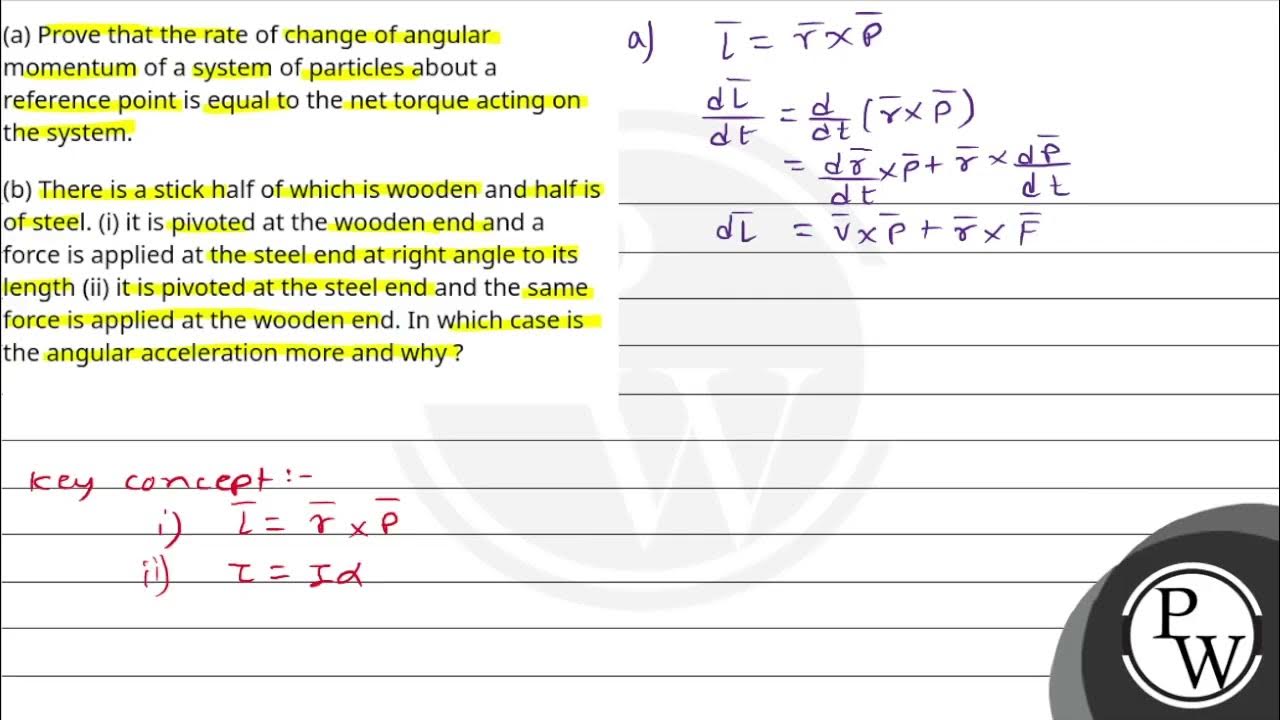 (a) Prove that the rate of change of angular
momentum of a system of particles about a
reference point is equal to the net torque acting on
the system.
(b) There is a stick half of which is wooden and half is
of steel. (i) it is pivoted at the wooden end and a
force is applied at the steel end at right angle to its
length (ii) it is pivoted at the steel end and the same
force is applied at the wooden end. In which case is
the angular acceleration more and why ?
Key concept :-
i) l̅ = r̅ × p̅
ii) τ = Iα
a) l̅ = r̅ × p̅
dL̅/dt = d/dt (r̅ × p̅)
= dr̅/dt × p̅ + r̅ × dp̅/dt
dL̅ = v̅ × p̅ + r̅ × F̅
P
W